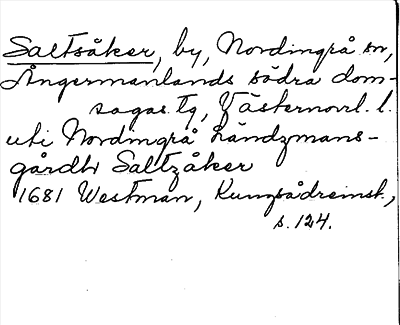 Saltsåker, by, Nordingrå sn,
Ångermanlands södra dom-
sagas tg, Västernorrl. l.
uti Nordingrå Ländzmans-
gårdh Saltzåker
1681 Westman, Kungsådreinst.,
s. 124.